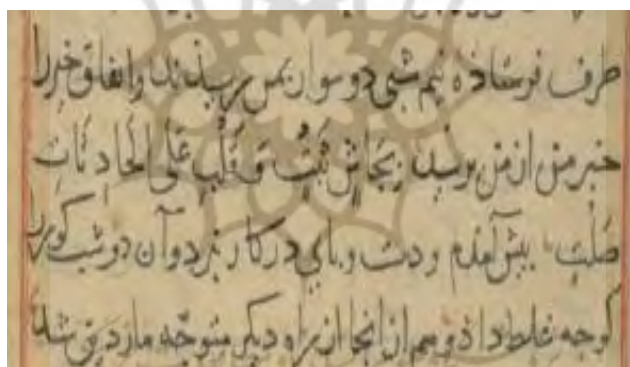 طرف فرستاذه نیم شبی دو سوار بمن رسیذند واتفاق خیر را
خبر من از من پرسید بجاش ثبت و قلب علی الحادثات
صلب پیش آمذم و دست و پای در کار نبرد و آن دو شب کور را
کوجه غلط داذ و هم از انجا از راه دیکر متوجه ماردین شد